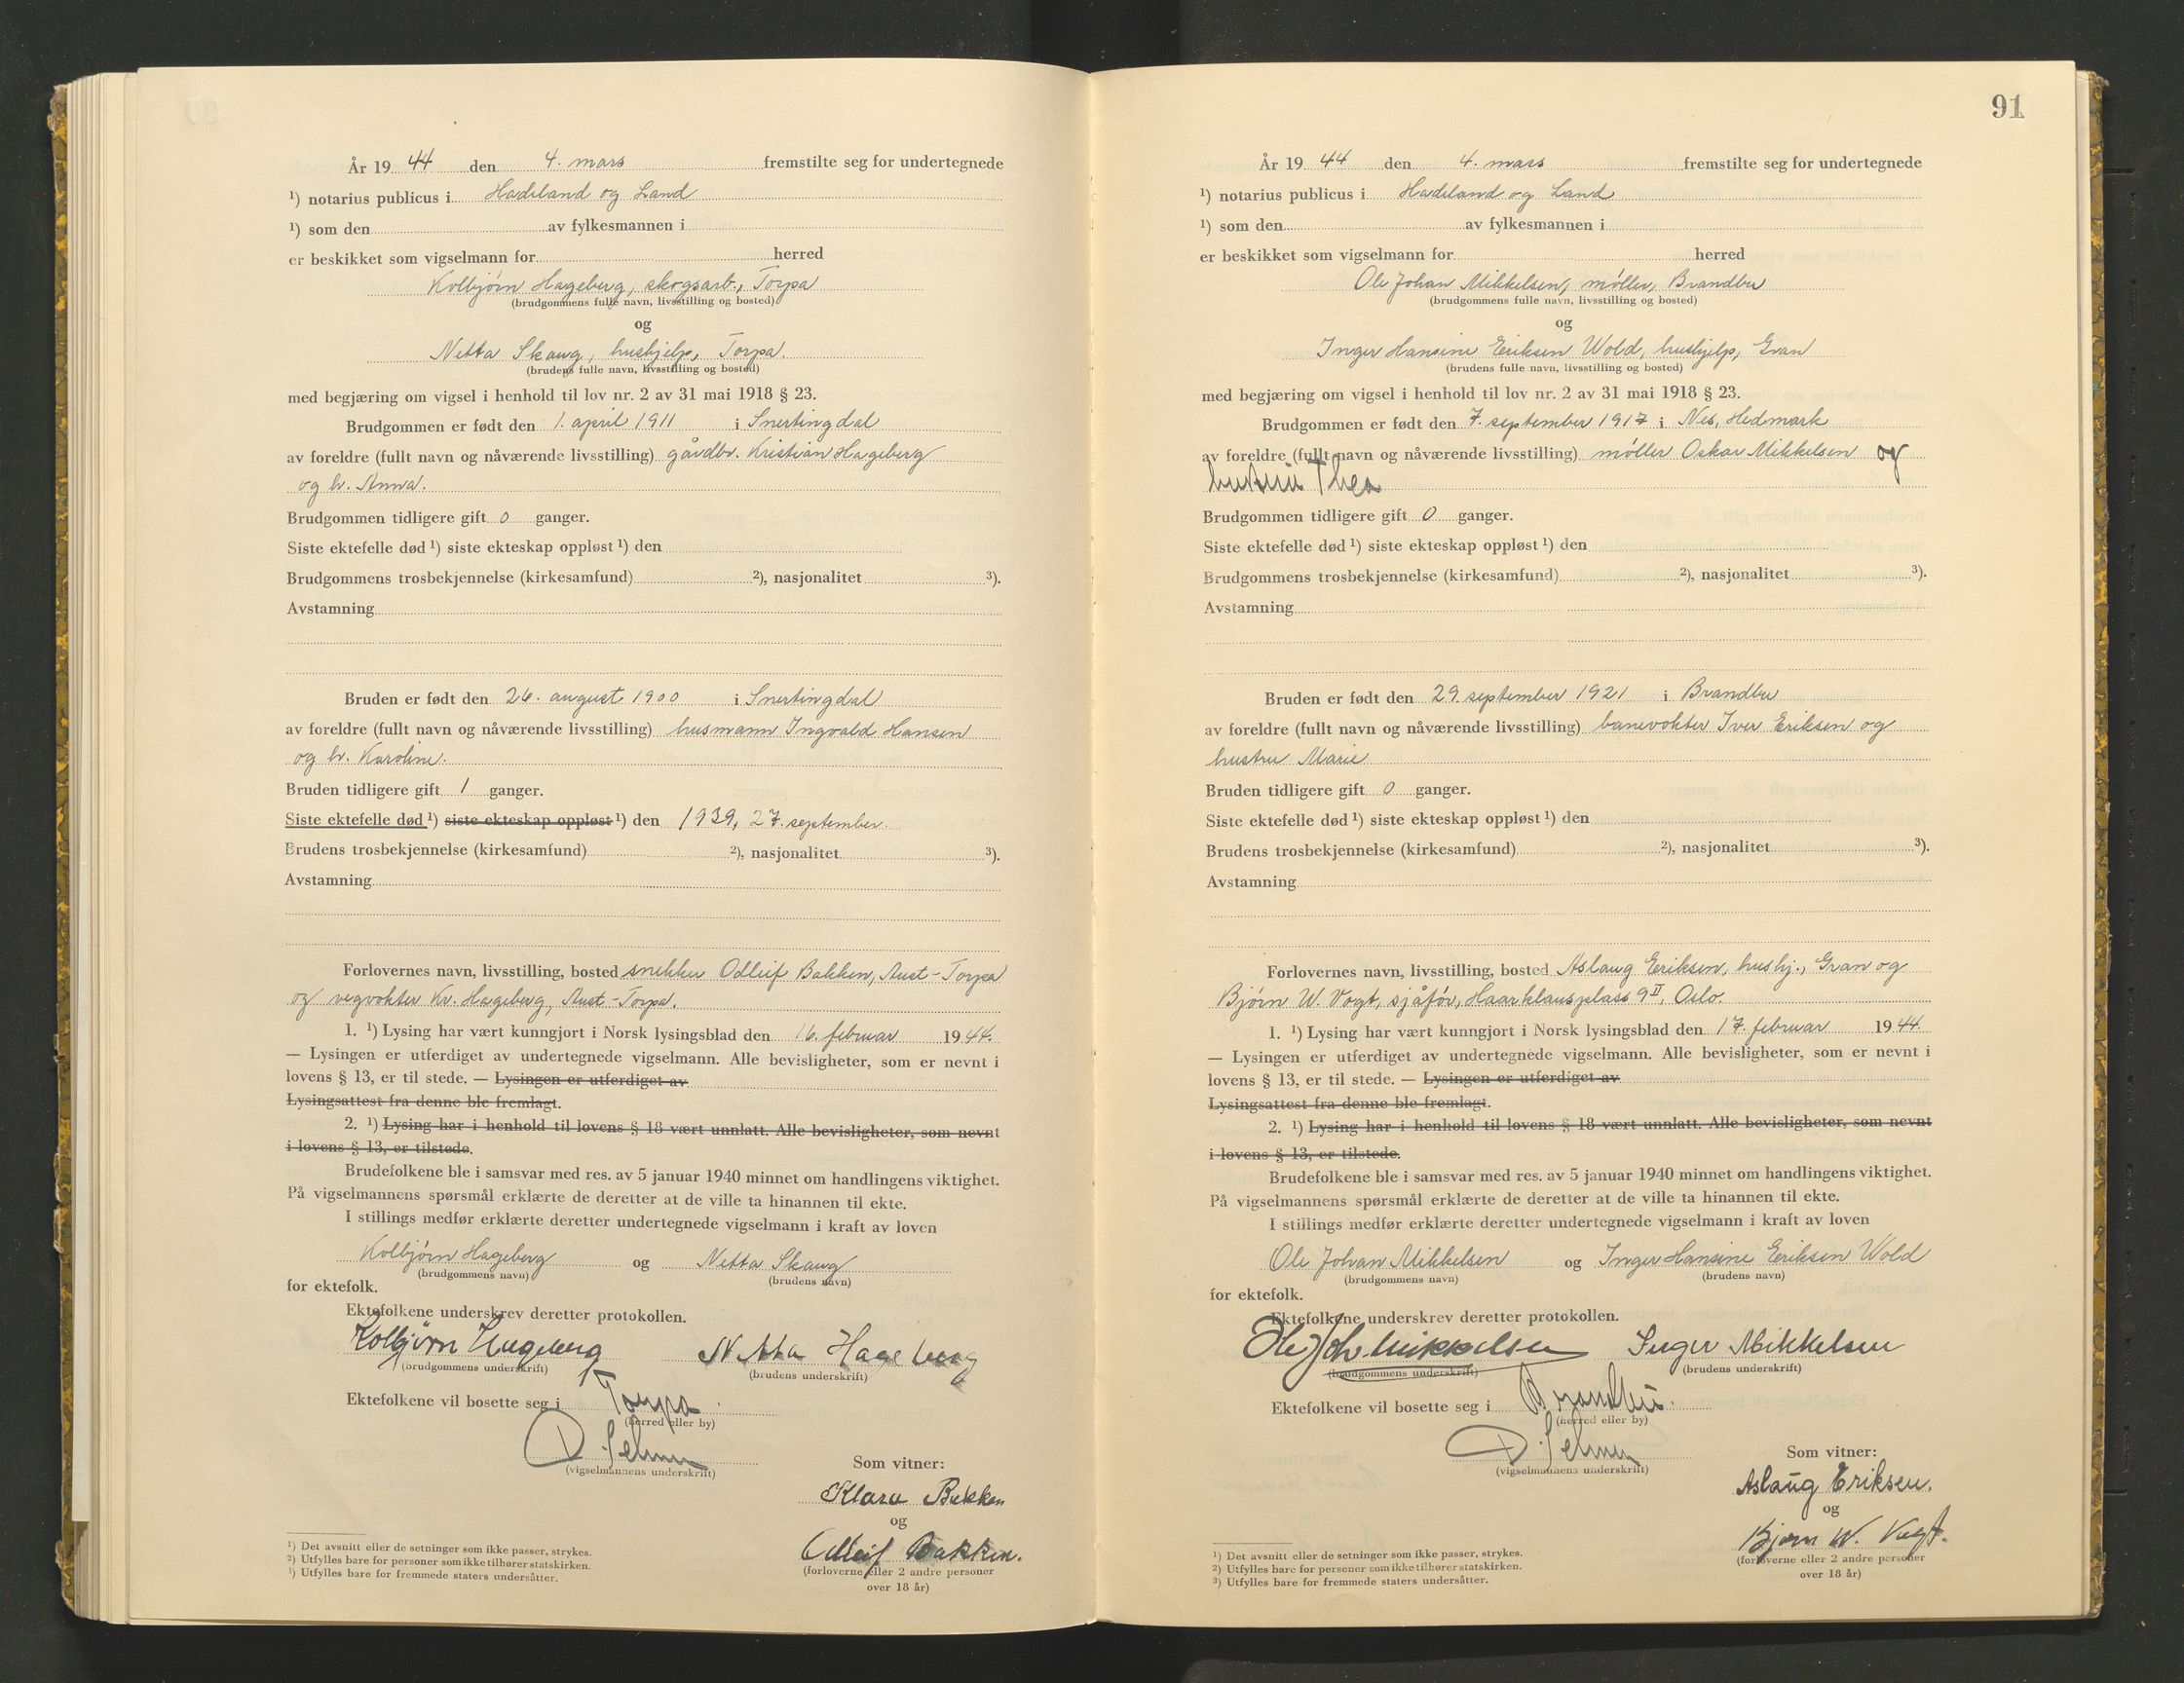 År 19 44 den 4. mars fremstilte seg for undertegnede
¹) notarius publicus i Hadeland og Land
¹) som den av fylkesmannen i
er beskikket som vigselmann for herred
Kolbjørn Hageberg, skogsarb., Torpa
(brudgommens fulle navn, livsstilling og bosted)
og
Netta Skaug, hushjelp, Torpa.
(brudens fulle navn, livsstilling og bosted)
med begjæring om vigsel i henhold til lov nr. 2 av 31 mai 1918 § 23.
Brudgommen er født den 1. april 1911 i Snertingdal
av foreldre (fullt navn og nåværende livsstilling) gårdbr. Kristian Hageberg
og h. Anna.
Brudgommen tidligere gift 0 ganger.
Siste ektefelle død ¹) siste ekteskap oppløst ¹) den
Brudgommens trosbekjennelse (kirkesamfund) ²), nasjonalitet ³).
Avstamning
Bruden er født den 26. august 1900 i Snertingdal
av foreldre (fullt navn og nåværende livsstilling) husmann Ingvald Hansen
og h. Karoline.
Bruden tidligere gift 1 ganger.
Siste ektefelle død ¹) siste ekteskap oppløst ¹) den 1939, 27. september.
Brudens trosbekjennelse (kirkesamfund) ²), nasjonalitet ³).
Avstamning
Forlovernes navn, livsstilling, bosted snekker Odleif Bakken, Aust-Torpa
og vegvokter Kr. Hageberg, Aust-Torpa.
1. ¹) Lysing har vært kunngjort i Norsk lysingsblad den 16. februar 1944.
— Lysingen er utferdiget av undertegnede vigselmann. Alle bevisligheter, som er nevnt i
lovens § 13, er til stede. — Lysingen er utferdiget av
Lysingsattest fra denne ble fremlagt.
2. ¹) Lysing har i henhold til lovens § 18 vært unnlatt. Alle bevisligheter, som nevnt
i lovens § 13, er tilstede.
Brudefolkene ble i samsvar med res. av 5 januar 1940 minnet om handlingens viktighet.
På vigselmannens spørsmål erklærte de deretter at de ville ta hinannen til ekte.
I stillings medfør erklærte deretter undertegnede vigselmann i kraft av loven
Kolbjørn Hageberg og Netta Skaug
(brudgommens navn) (brudens navn)
for ektefolk.
Ektefolkene underskrev deretter protokollen.
Kolbjørn Hageberg Netta Hageberg
(brudgommens underskrift) (brudens underskrift)
Ektefolkene vil bosette seg i Torpa.
(herred eller by)
D. Selmer
(vigselmannens underskrift)
Som vitner:
Klara Bakken
og
Odleif Bakken.
(forloverne eller 2 andre personer
over 18 år)
¹) Det avsnitt eller de setninger som ikke passer, strykes.
²) Utfylles bare for personer som ikke tilhører statskirken.
³) Utfylles bare for fremmede staters undersåtter.
91
År 19 44 den 4. mars fremstilte seg for undertegnede
¹) notarius publicus i Hadeland og Land
¹) som den av fylkesmannen i
er beskikket som vigselmann for herred
Ole Johan Mikkelsen, møller, Brandbu
(brudgommens fulle navn, livsstilling og bosted)
og
Inger Hansine Eriksen Wold, hushjelp, Gran
(brudens fulle navn, livsstilling og bosted)
med begjæring om vigsel i henhold til lov nr. 2 av 31 mai 1918 § 23.
Brudgommen er født den 7. september 1917 i Nes, Hedmark
av foreldre (fullt navn og nåværende livsstilling) møller Oskar Mikkelsen og
hustru Thea
Brudgommen tidligere gift 0 ganger.
Siste ektefelle død ¹) siste ekteskap oppløst ¹) den
Brudgommens trosbekjennelse (kirkesamfund) ²), nasjonalitet ³).
Avstamning
Bruden er født den 29. september 1921 i Brandbu
av foreldre (fullt navn og nåværende livsstilling) banevokter Iver Eriksen og
hustru Marie
Bruden tidligere gift 0 ganger.
Siste ektefelle død ¹) siste ekteskap oppløst ¹) den
Brudens trosbekjennelse (kirkesamfund) ²), nasjonalitet ³).
Avstamning
Forlovernes navn, livsstilling, bosted Aslaug Eriksen, hushj., Gran og
Bjørn W. Vogt, sjåfør, Haarklausplass 9 II, Oslo.
1. ¹) Lysing har vært kunngjort i Norsk lysingsblad den 17. februar 1944.
— Lysingen er utferdiget av undertegnede vigselmann. Alle bevisligheter, som er nevnt i
lovens § 13, er til stede. — Lysingen er utferdiget av
Lysingsattest fra denne ble fremlagt.
2. ¹) Lysing har i henhold til lovens § 18 vært unnlatt. Alle bevisligheter, som nevnt
i lovens § 13, er tilstede.
Brudefolkene ble i samsvar med res. av 5 januar 1940 minnet om handlingens viktighet.
På vigselmannens spørsmål erklærte de deretter at de ville ta hinannen til ekte.
I stillings medfør erklærte deretter undertegnede vigselmann i kraft av loven
Ole Johan Mikkelsen og Inger Hansine Eriksen Wold
(brudgommens navn) (brudens navn)
for ektefolk.
Ektefolkene underskrev deretter protokollen.
Ole Joh. Mikkelsen Inger Mikkelsen
(brudgommens underskrift) (brudens underskrift)
Ektefolkene vil bosette seg i Brandbu.
(herred eller by)
D. Selmer
(vigselmannens underskrift)
Som vitner:
Aslaug Eriksen.
og
Bjørn W. Vogt.
(forloverne eller 2 andre personer
over 18 år)
¹) Det avsnitt eller de setninger som ikke passer, strykes.
²) Utfylles bare for personer som ikke tilhører statskirken.
³) Utfylles bare for fremmede staters undersåtter.